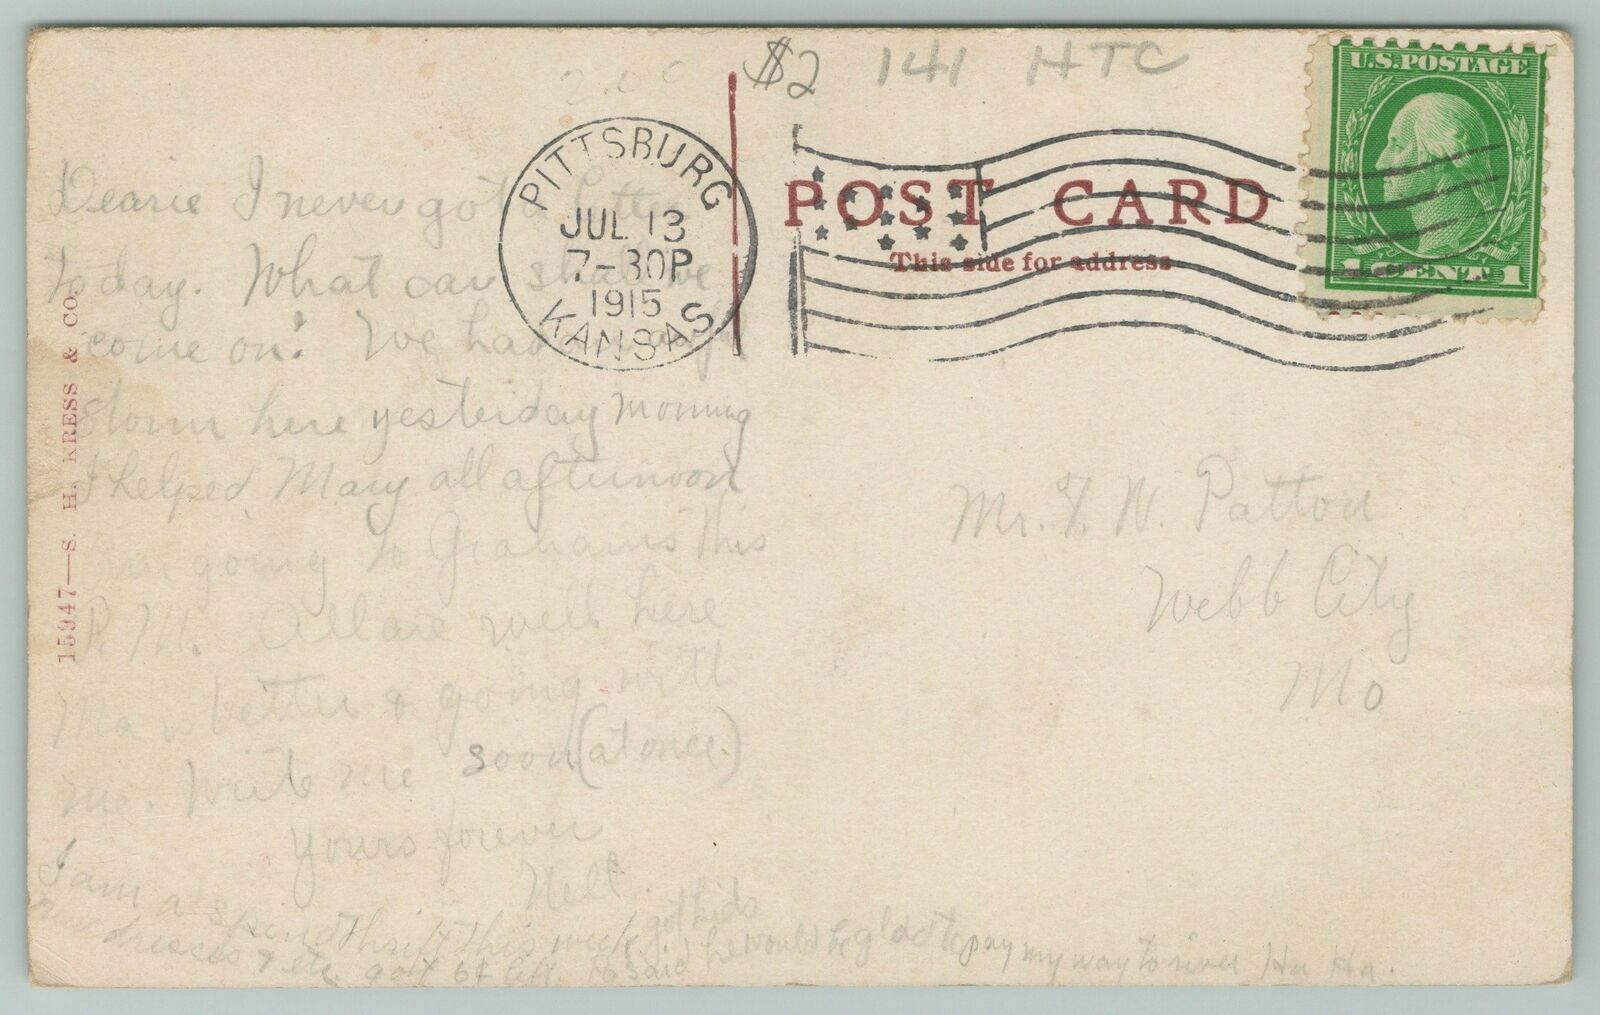 $2 141 HTC
2.00
U.S. POSTAGE
1 CENT 1
PITTSBURG
JUL 13
7-30P
1915
KANSAS
POST CARD
This side for address
15947—S. H. KRESS & CO.
Dearie I never got a letter
today. What can
come on! We had
storm here yesterday morning
I helped Mary all afternoon
going to Grahams this
P.M. All are well here
Ma is better & going with
me. Write me soon (at once.)
Yours forever
Nell.
I am a spendthrift this week got kids
new dresses & etc. got 6¢ left. Pa said he would be glad to pay my way to Ha Ha.
Mr. F. W. Patton
Webb City
Mo